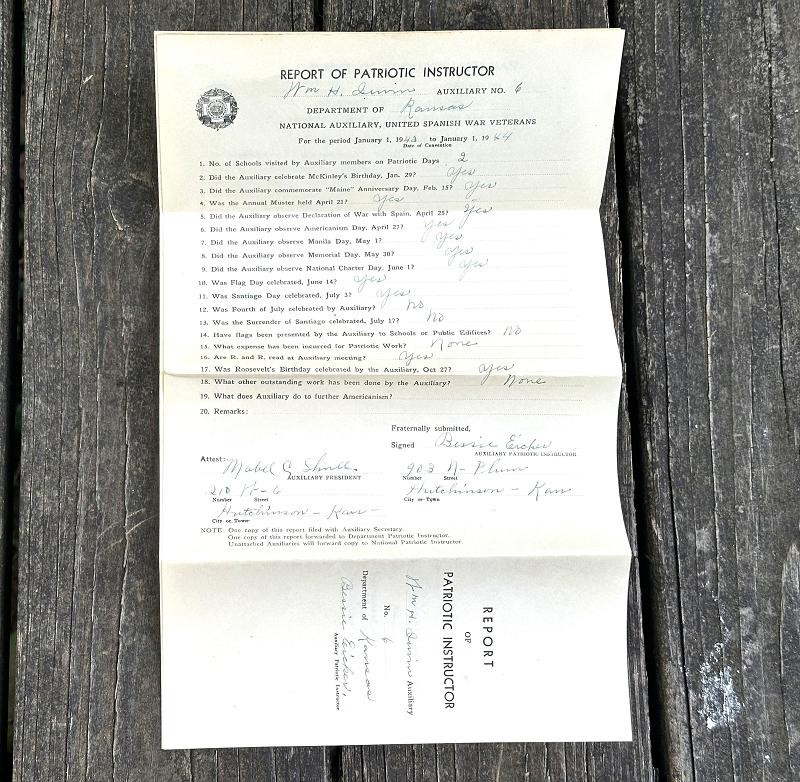 REPORT OF PATRIOTIC INSTRUCTOR
Wm H. AUXILIARY NO. 6
DEPARTMENT OF Kansas
NATIONAL AUXILIARY, UNITED SPANISH WAR VETERANS
For the period January 1, 1943 to January 1, 1944
Date of Convention
1. No. of Schools visited by Auxiliary members on Patriotic Days 2
2. Did the Auxiliary celebrate McKinley's Birthday, Jan. 29? Yes
3. Did the Auxiliary commemorate "Maine" Anniversary Day, Feb. 15? Yes
4. Was the Annual Muster held April 21? Yes
5. Did the Auxiliary observe Declaration of War with Spain, April 25? Yes
6. Did the Auxiliary observe Americanism Day, April 27? Yes
7. Did the Auxiliary observe Manila Day, May 1? Yes
8. Did the Auxiliary observe Memorial Day, May 30? Yes
9. Did the Auxiliary observe National Charter Day, June 1? Yes
10. Was Flag Day celebrated, June 14? Yes
11. Was Santiago Day celebrated, July 3? Yes
12. Was Fourth of July celebrated by Auxiliary? No
13. Was the Surrender of Santiago celebrated, July 17? No
14. Have flags been presented by the Auxiliary to Schools or Public Edifices? No
15. What expense has been incurred for Patriotic Work? None
16. Are R. and R. read at Auxiliary meeting? Yes
17. Was Roosevelt's Birthday celebrated by the Auxiliary, Oct 27? Yes
18. What other outstanding work has been done by the Auxiliary? None
19. What does Auxiliary do to further Americanism?
20. Remarks:
Fraternally submitted,
Signed Bessie Eicher
AUXILIARY PATRIOTIC INSTRUCTOR
Attest: Mabel
AUXILIARY PRESIDENT
903 N - Plum
Number Street
210 - 6
Number Street
Hutchinson - Kan
City or Town
Hutchinson - Kan -
City or Town
NOTE: One copy of this report filed with Auxiliary Secretary.
One copy of this report forwarded to Department Patriotic Instructor.
Unattached Auxiliaries will forward copy to National Patriotic Instructor.
REPORT
OF
PATRIOTIC INSTRUCTOR
Wm H. Auxiliary
No. 6
Department of Kansas
Bessie Eicher,
Auxiliary Patriotic Instructor